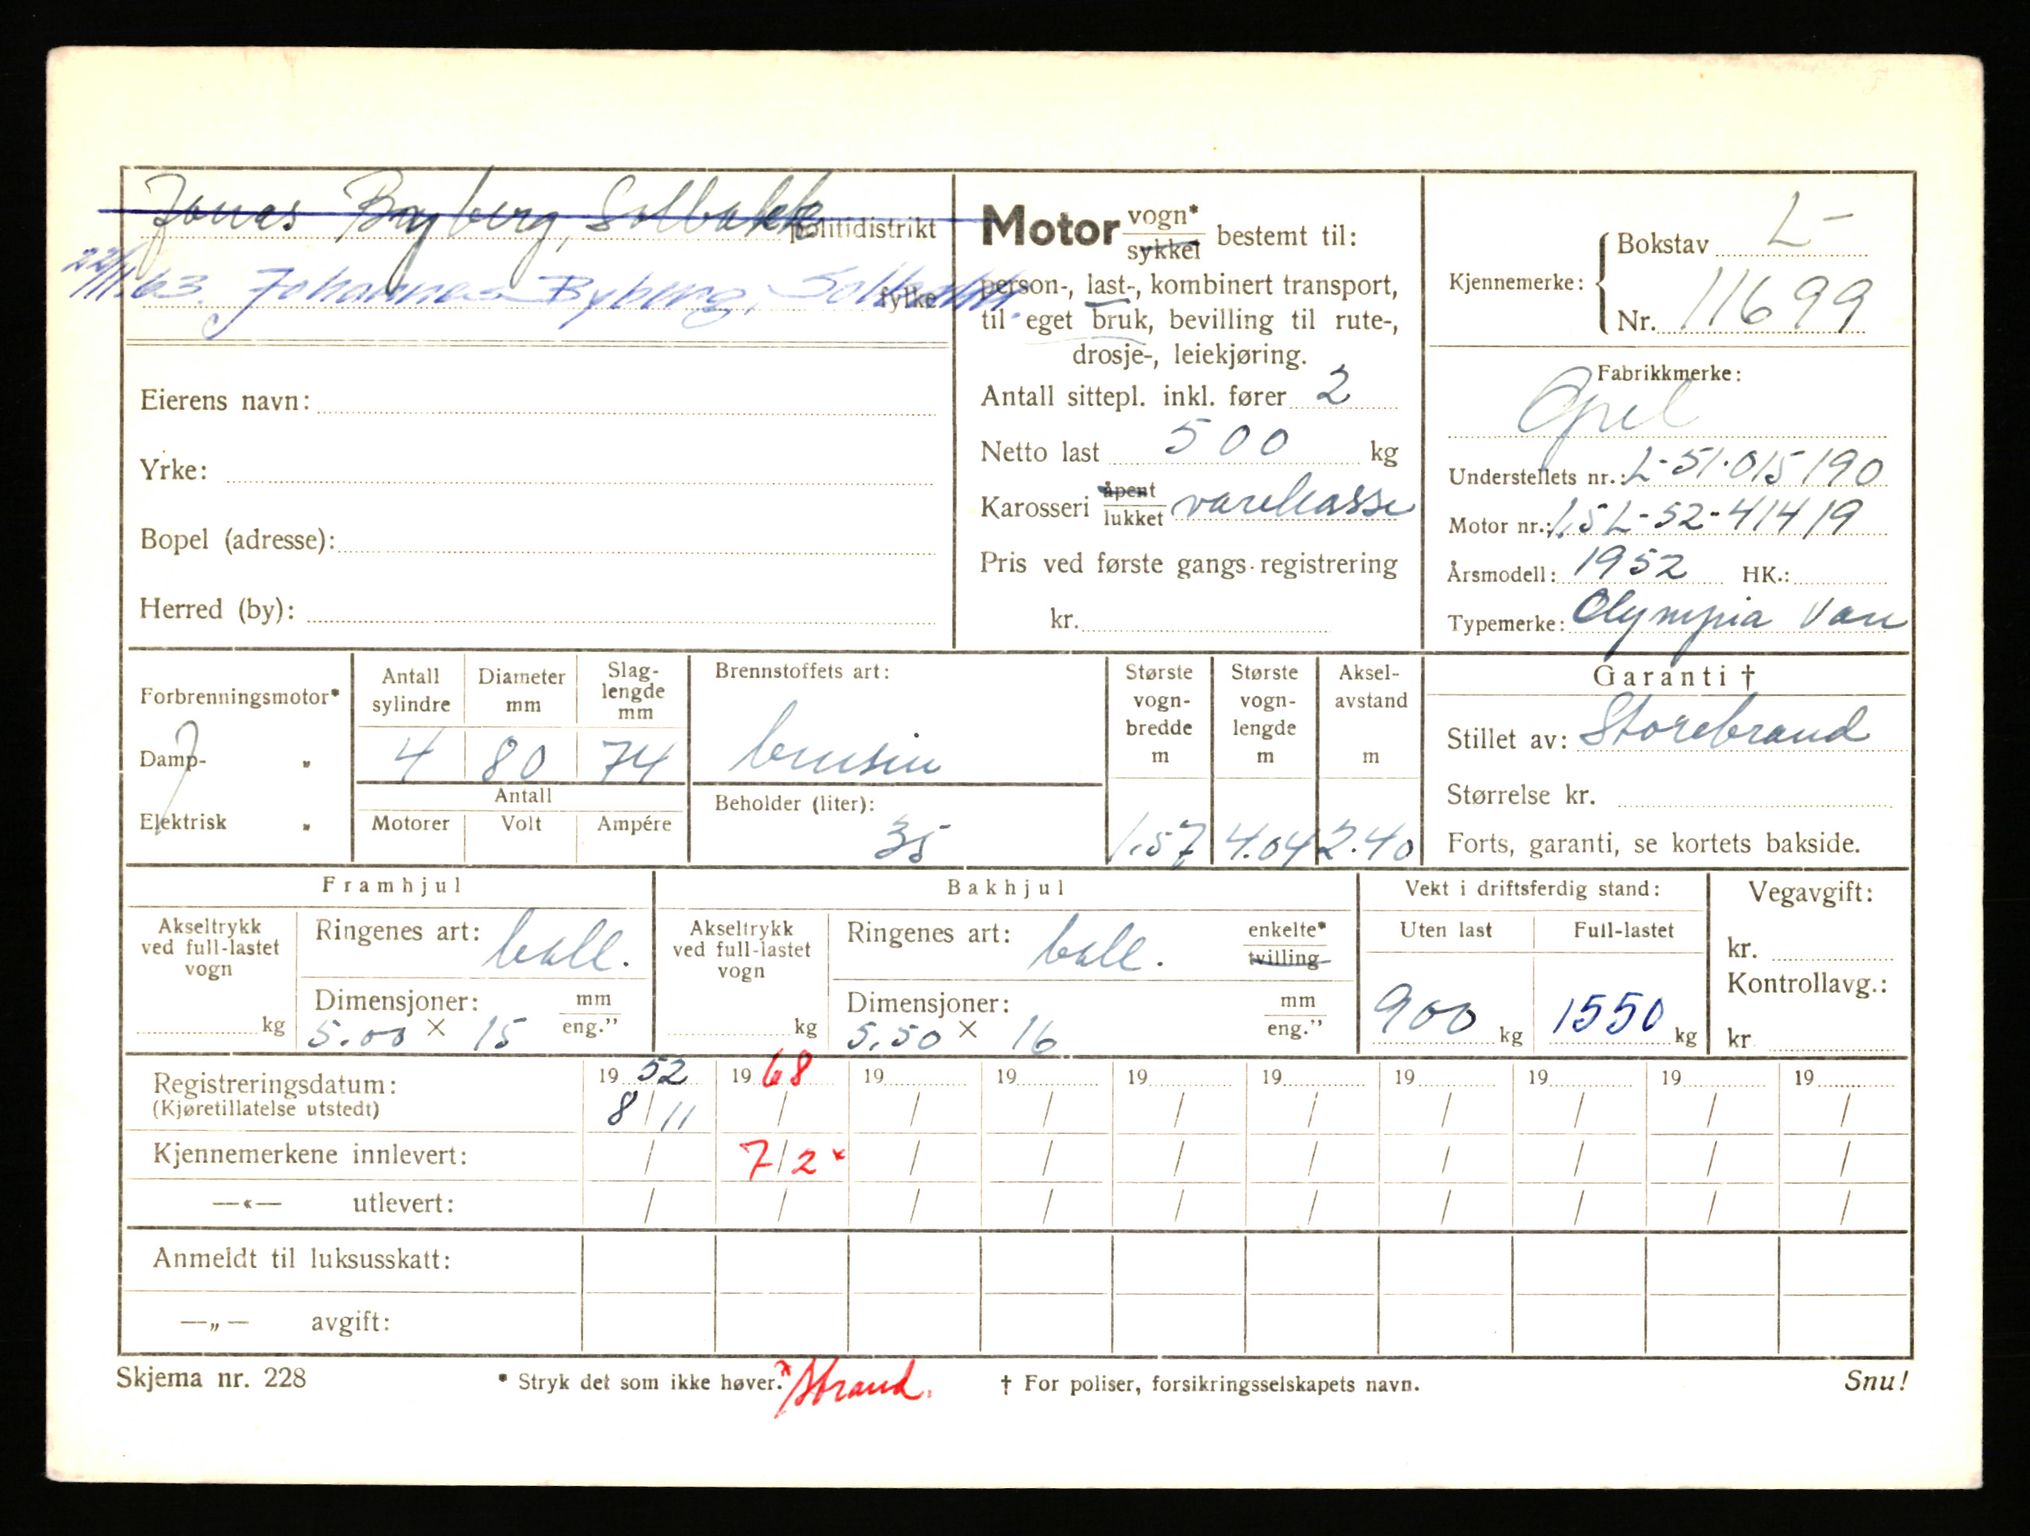 Jonas Byberg, Solbakk politidistrikt
22/11.63. Johannes Byberg, Solbakk. fylke
Eierens navn:
Yrke:
Bopel (adresse):
Herred (by):
Motor vogn* sykkel bestemt til:
person-, last-, kombinert transport,
til eget bruk, bevilling til rute-,
drosje-, leiekjøring.
Antall sittepl. inkl. fører 2
Netto last 500 kg
Karosseri åpent lukket varekasse
Pris ved første gangs registrering
kr.
Kjennemerke: Bokstav L-
Nr. 11699
Fabrikkmerke:
Opel
Understellets nr.: L-51.015190
Motor nr.: 1,5 L-52-41419
Årsmodell: 1952 HK.:
Typemerke: Olympia Van
Forbrenningsmotor*
Damp- „
Elektrisk „
Antall sylindre Diameter mm Slag-lengde mm
4 80 74
Antall
Motorer Volt Ampére
Brennstoffets art:
bensin
Beholder (liter):
35
Største vogn-bredde m Største vogn-lengde m Aksel-avstand m
1.57 4.04 2.40
Garanti †
Stillet av: Storebrand
Størrelse kr.
Forts, garanti, se kortets bakside.
Framhjul
Akseltrykk ved full-lastet vogn
kg
Ringenes art: ball.
Dimensjoner: mm eng.”
5.00 × 15
Bakhjul
Akseltrykk ved full-lastet vogn
kg
Ringenes art: ball. enkelte* tvilling
Dimensjoner: mm eng.”
5.50 × 16
Vekt i driftsferdig stand:
Uten last Full-lastet
900 kg 1550 kg
Vegavgift:
kr.
Kontrollavg.:
kr
Registreringsdatum: 19 52 19 68 19 19 19 19 19 19 19 19
(Kjøretillatelse utstedt) 8/11 / / / / / / / / /
Kjennemerkene innlevert: / 7/2 * / / / / / / / /
—«— utlevert: / / / / / / / / / /
Anmeldt til luksusskatt:
—„— avgift:
Skjema nr. 228 * Stryk det som ikke høver. * Strand. † For poliser, forsikringsselskapets navn. Snu!